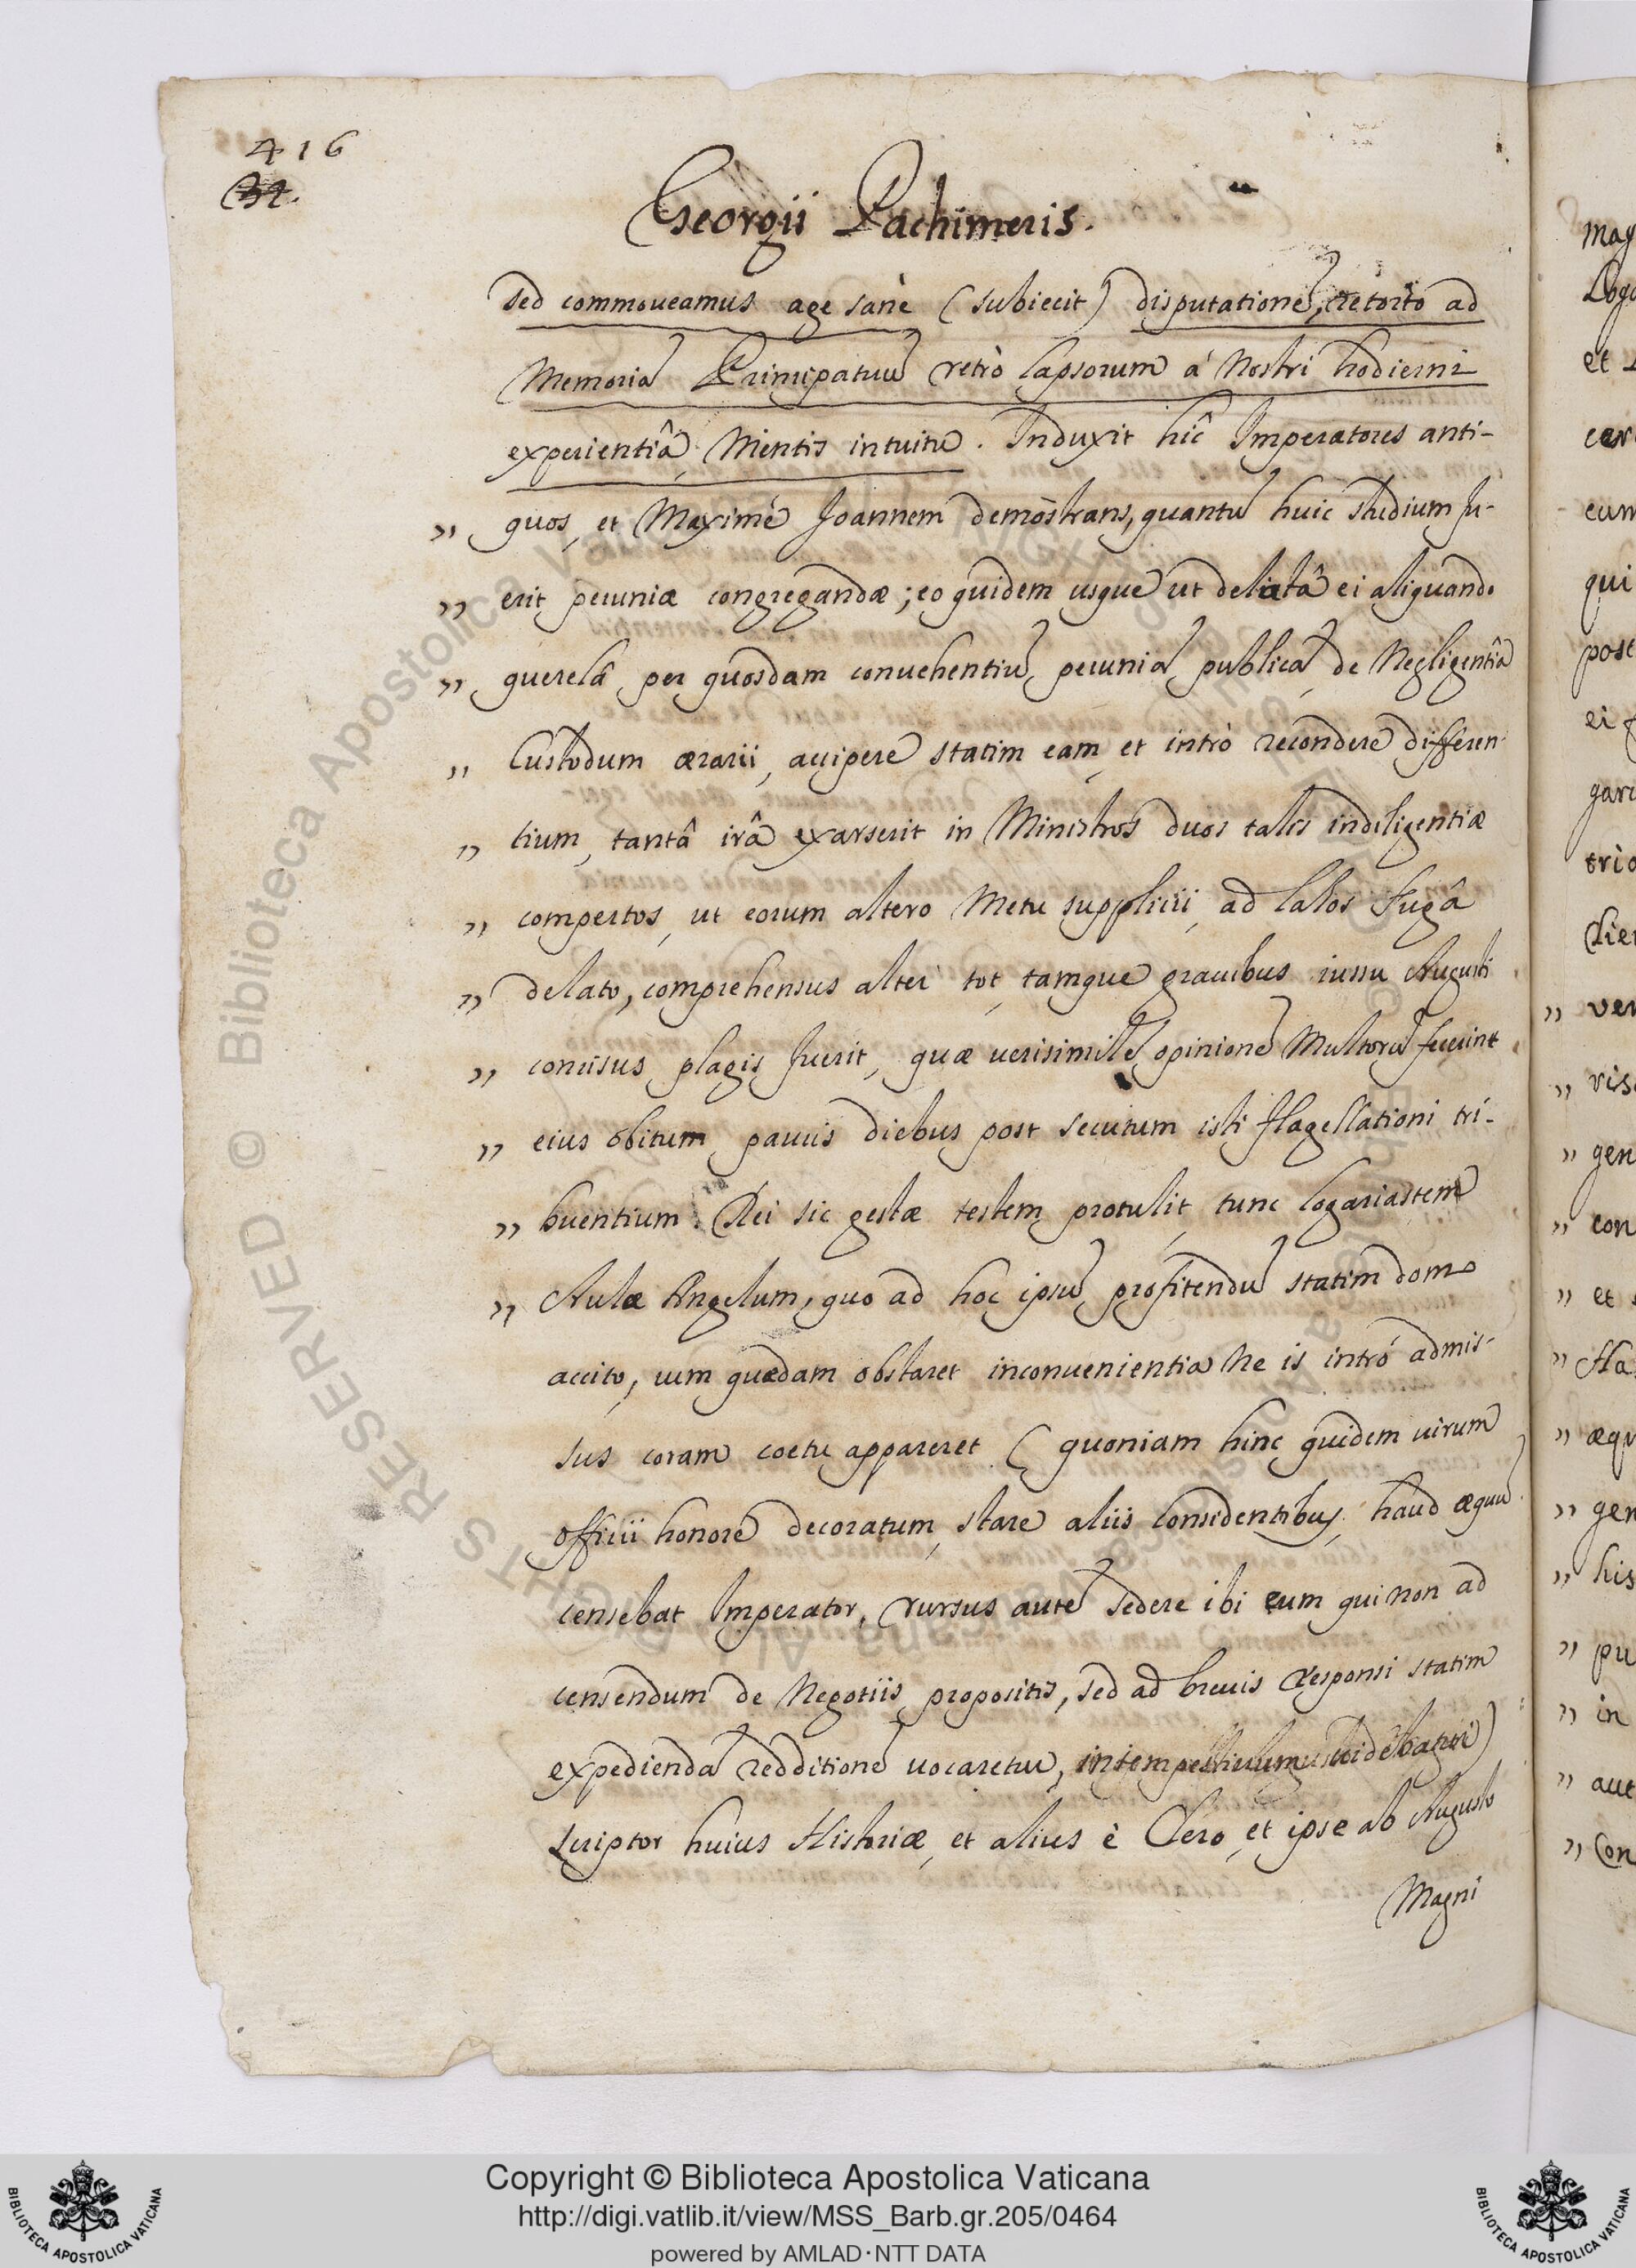 416
Georgii Pachimeris.
sed commoveamus age sanè (subiecit) disputationẽ, retorto ad
Memoriã Principatuũ retrò lapsorum à Nostri hodierni
experientiâ Mentis intuitu. Induxit hîc Imperatores anti-
„ quos, et Maximè Joannem demõstrans, quantũ huic studium fu-
„ erit pecuniæ congregandæ; eo quidem usque ut delatâ ei aliquando
„ querelâ per quosdam convehentiũ pecuniã publicã de Negligentiâ
„ Custodum ærarii, accipere statim eam et intrò recondere differen-
„ tium, tantâ irâ exarserit in Ministros duos talis indiligentiæ
„ compertos, ut eorum altero Metu supplicii ad Latos fugâ
„ delato, comprehensus alter tot tamque gravibus iussu Augusti
„ concisus plagis fuerit, quæ verisimilẽ opinionẽ Multorũ fecerint
„ eius obitum paucis diebus post secutum isti flagellationi tri-
„ buentium. Rei sic gestæ testem protulit tunc logariastem
„ Aulæ Angelum, quo ad hoc ipsũ profitendũ statim domo
accito, cum quædam obstaret inconvenientia Ne is intrò admis-
sus coram coetu appareret (quoniam hinc quidem virum
officii honore decoratum stare aliis considentibus haud æquũ
censebat Imperator, rursus autẽ sedere ibi eum qui non ad
censendum de Negotiis propositis, sed ad brevis responsi statim
expediendã redditionẽ vocaretur, intempestivum videbatur)
scriptor huius Historiæ et alius è Clero et ipse ab Augusto
Magni
may
et
qui
post
ei
„ ver
„ gen
„ con
„ et
„ æqu
„ gen
„ his
„ pu
„ in
„ aut
„ Con
© Biblioteca Apostolica Vaticana ALL RIGHTS RESERVED
Copyright © Biblioteca Apostolica Vaticana
http://digi.vatlib.it/view/MSS_Barb.gr.205/0464
powered by AMLAD·NTT DATA
BIBLIOTECA APOSTOLICA VATICANA
BIBLIOTECA APOSTOLICA VATICANA